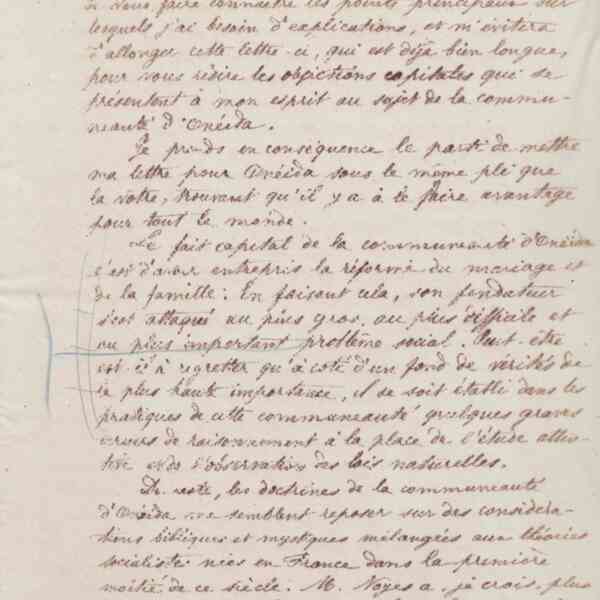 à vous faire connaître les points principaux sur
lesquels j'ai besoin d'explications, et m'évitera
d'allonger cette lettre-ci, qui est déjà bien longue,
pour vous redire les objections capitales qui se
présentent à mon esprit au sujet de la commu-
neauté d'Onéida.
Je prends en conséquence le parti de mettre
ma lettre pour Onéida sous le même pli que
la votre, trouvant qu'il y a à le faire avantage
pour tout le monde.
Le fait capital de la communeauté d'Onéida
c'est d'avoir entrepris la réforme du mariage et
de la famille: En faisant cela, son fondateur
s'est attaqué au plus gros, au plus difficile et
au plus important problème social. Peut-être
est-il à regretter qu'à coté d'un fond de vérités de
la plus haute importance, il se soit établi dans les
pratiques de cette communeauté quelques graves
erreurs de raisonnement à la place de l'étude atten-
tive et de l'observation des lois naturelles.
Du reste, les doctrines de la communeauté
d'Onéida me semblent reposer sur des considéra-
tions bibliques et mystiques mélangées aux théories
socialistes nées en France dans la première
moitié de ce siècle. M. Noyes a, je crois, plus